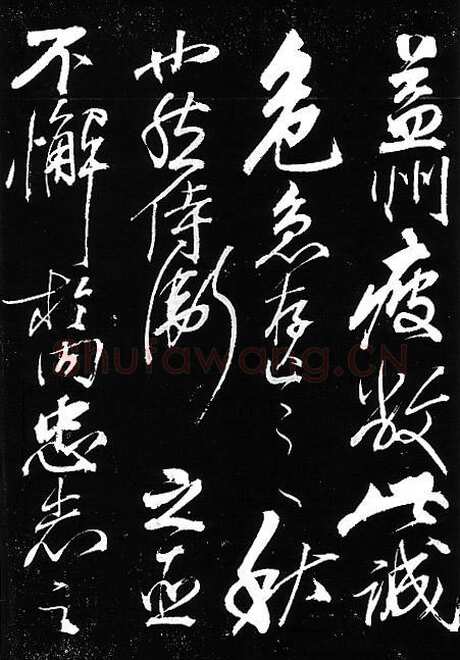 益州疲敝此誠
危急存亡之秋
也然侍衛之臣
不懈於內忠志之
Shufawang.CN